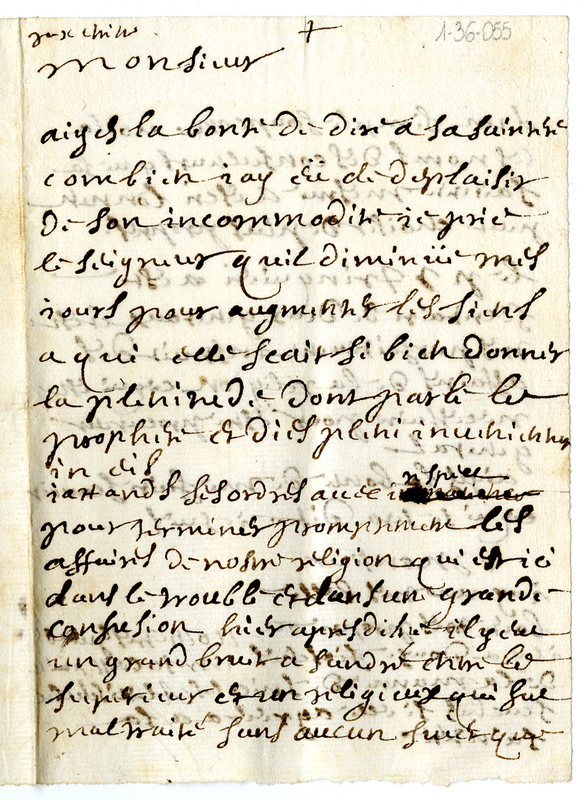 pax christi
1-36-055
Monsieur
ayés la bonté de dire a sa sainteté
combien iay eü de deplaisir
de son incommodité ie prie
le seigneur quil diminüe mes
iours pour augmenter les siens
a qui elle scait si bien donner
la plenitude dont parle le
prophete et dies pleni invenientur
in eis
iattands ses ordres avec respect
pour terminer promptement les
affaires de nostre religion qui est ici
dans le trouble et dans une grande
confusion hier apres diné il y eut
un grand bruit a s andré entre le
superieur et un religieux qui fut
maltraité sans aucun suiet que